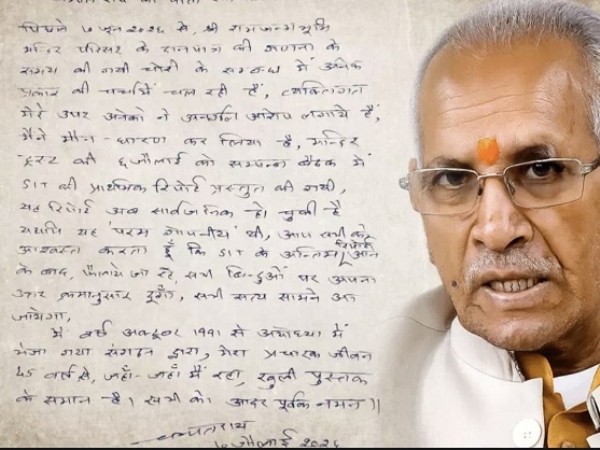 पिछले ७ जून २०२६ से, श्री रामजन्मभूमि
मन्दिर परिसर के दानपात्र की गणना के
समय की गयी चोरी के सम्बन्ध में अनेक
प्रकार की चर्चायें चल रही हैं, व्यक्तिगत
मेरे उपर अनेको ने अनर्गल आरोप लगाये हैं,
मैंने मौन-धारण कर लिया है, मन्दिर
ट्रस्ट की ६ जौलाई को सम्पन्न बैठक में
SIT की प्राथमिक रिपोर्ट प्रस्तुत की गयी,
यह रिपोर्ट अब सार्वजनिक हो चुकी है
यद्यपि यह 'परम गोपनीय' थी, आप सभी को
आश्वस्त करता हूँ कि SIT के अन्तिम रिपोर्ट आने
के बाद, फैलाये जा रहे सभी बिन्दुओं पर अपना
उत्तर क्रमानुसार दूँगा, सभी सत्य सामने आ
जायेगा,
में वर्ष अक्टूबर 1991 से अयोध्या में
भेजा गया संगठन द्वारा, मेरा प्रचारक जीवन
45 वर्ष से, जहाँ-जहाँ मैं रहा, खुली पुस्तक
के समान है। सभी को आदर पूर्वक नमन।।
चम्पतराय
७ जौलाई २०२६